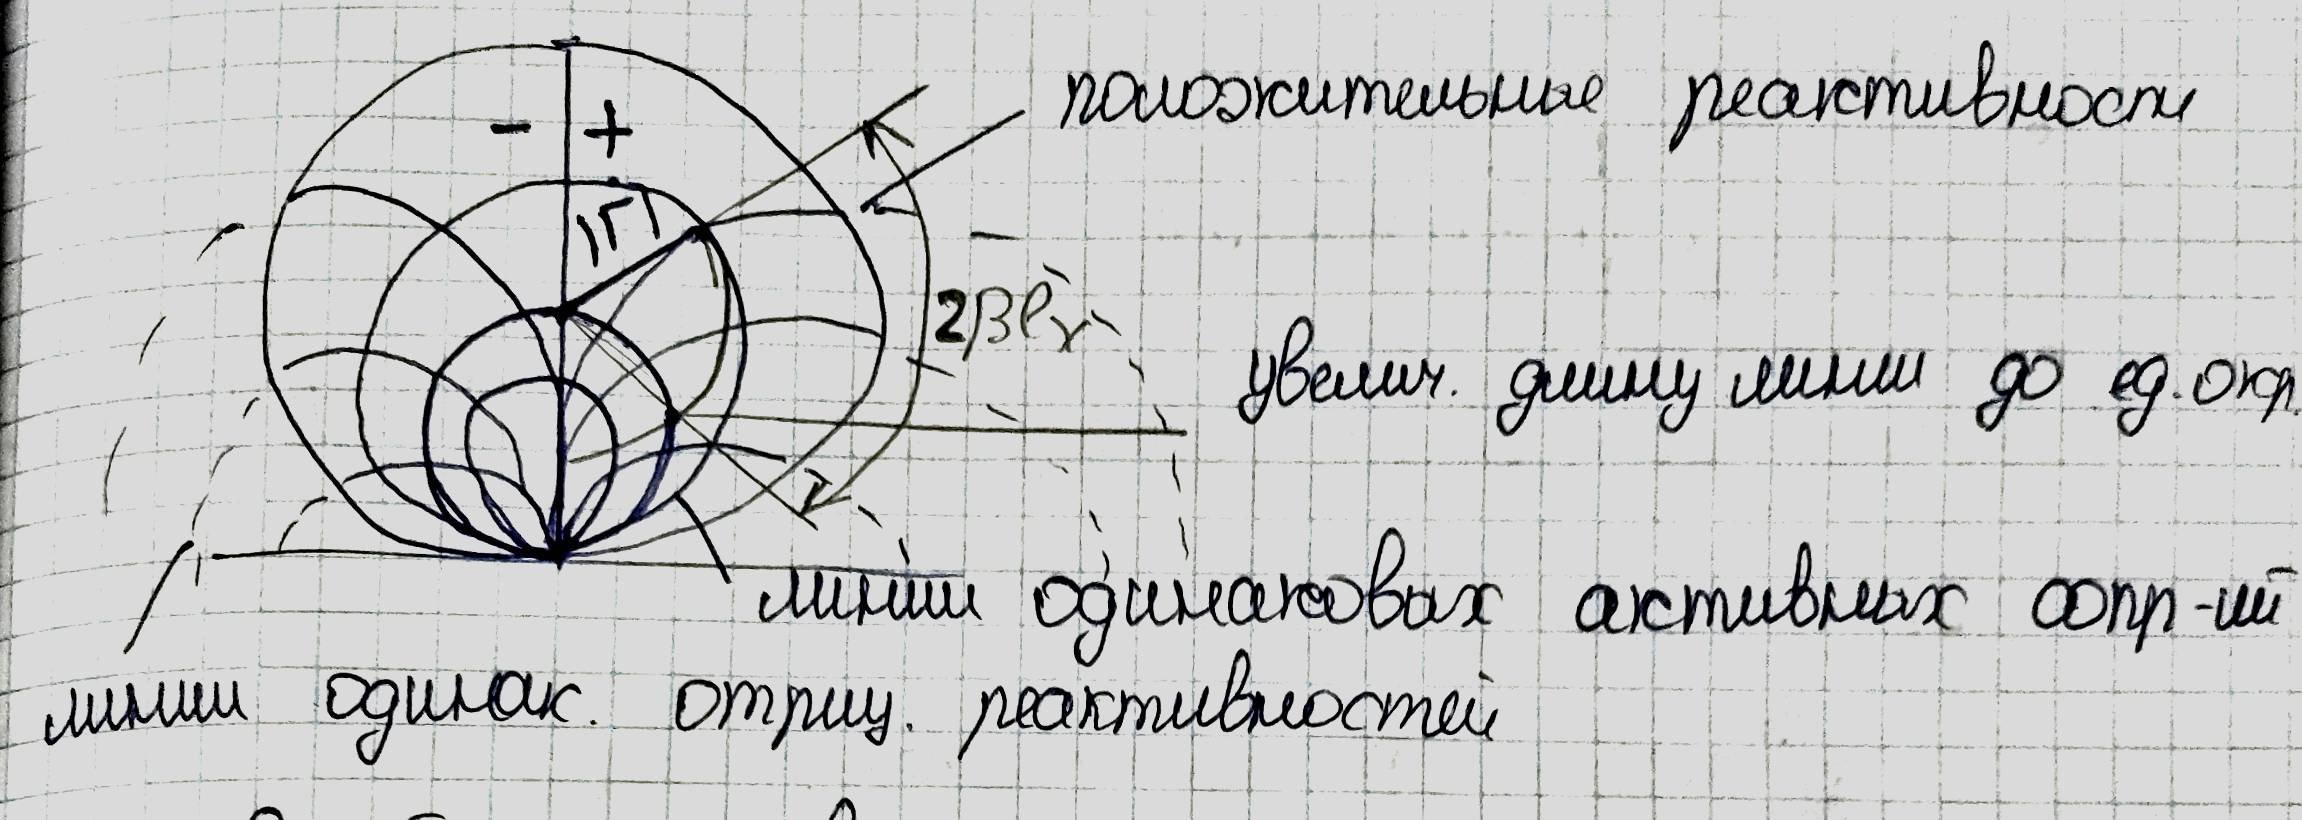 положительные реактивности
- +
|Г|
2βl
увелич. длину линии до ед. окр.
линии одинаковых активных сопр-ий
линии одинак. отриц. реактивностей